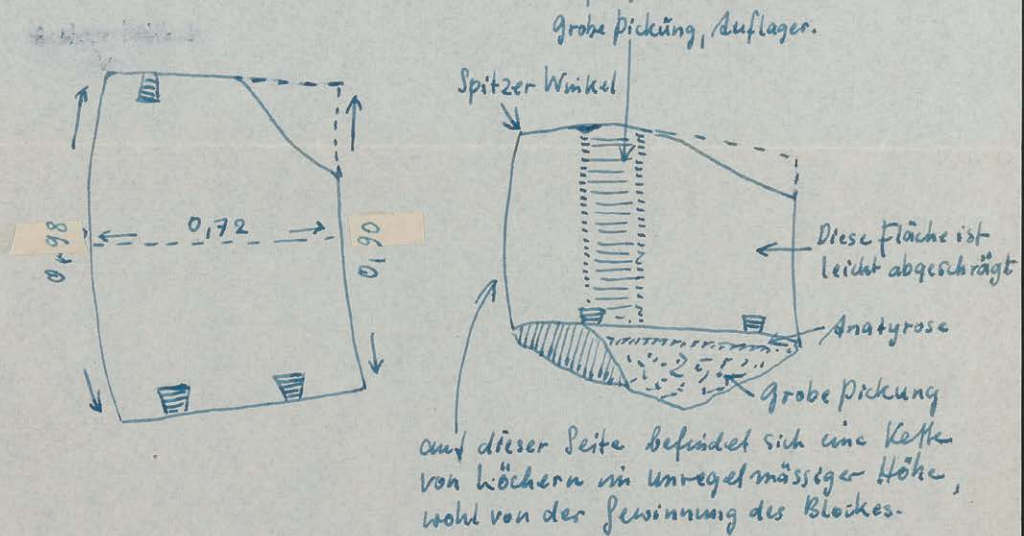 Grobe Pickung, Auflager.
Spitzer Winkel
0,98
0,72
0,90
Diese Fläche ist
leicht abgeschrägt
Anatyrose
25
Grobe Pickung
auf dieser Seite befindet sich eine Kette
von Löchern in unregelmässiger Höhe,
wohl von der Gewinnung des Blockes.